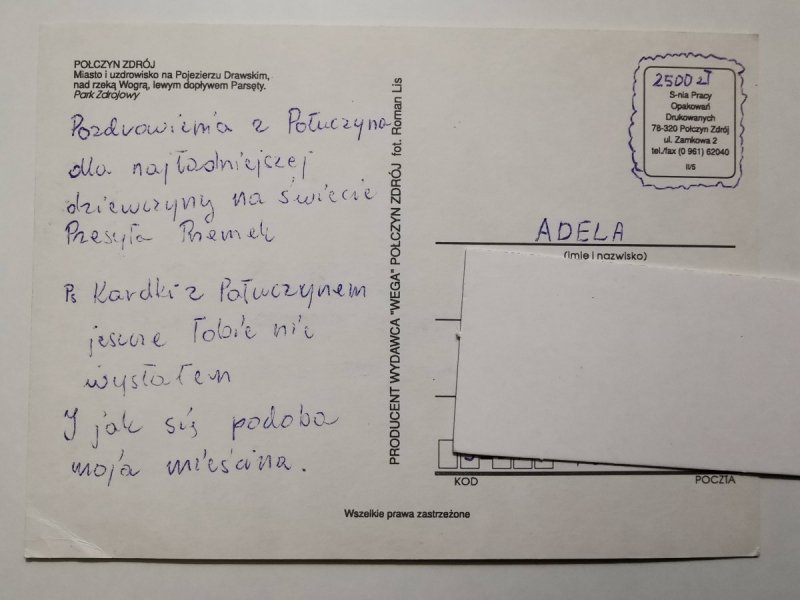 POŁCZYN ZDRÓJ
Miasto i uzdrowisko na Pojezierzu Drawskim,
nad rzeką Wogrą, lewym dopływem Parsęty.
Park Zdrojowy
Pozdrowienia z Połuczyna
dla najładniejszej
dziewczyny na świecie
Przesyła Przemek
Ps Kardki z Połuczynem
jeszcze Tobie nie
wysłałem
I jak się podoba
moja mieścina.
PRODUCENT WYDAWCA "WEGA" POŁCZYN ZDRÓJ fot. Roman Lis
2500 zł
S-nia Pracy
Opakowań
Drukowanych
78-320 Połczyn Zdrój
ul. Zamkowa 2
tel./fax (0 961) 62040
II/5
ADELA
(imię i nazwisko)
KOD
POCZTA
Wszelkie prawa zastrzeżone